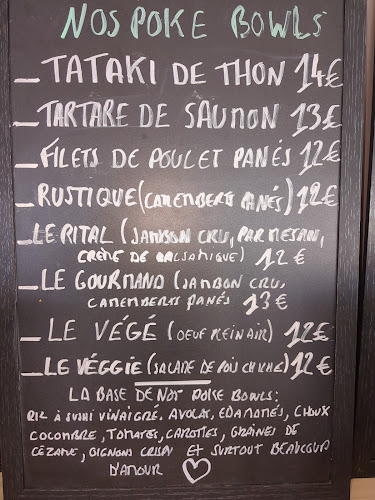 NOS POKE BOWLS
_ TATAKI DE THON 14€
_ TARTARE DE SAUMON 13€
_ FILETS DE POULET PANÉS 12€
_ RUSTIQUE (CAMEMBERTS PANÉS) 12€
_ LE RITAL (JAMBON CRU, PARMESAN,
CRÈME DE BALSAMIQUE) 12€
_ LE GOURMAND (JAMBON CRU,
CAMEMBERTS PANÉS 13€
_ LE VÉGÉ (OEUF PLEIN AIR) 12€
_ LE VÉGGIE (SALADE DE POIS CHICHE) 12€
LA BASE DE NOS POKE BOWLS:
RIZ À SUSHI VINAIGRÉ, AVOCAT, EDAMAMÉS, CHOUX
CONCOMBRE, TOMATES, CAROTTES, GRAINES DE
CÉZAME, OIGNONS CRISPY ET SURTOUT BEAUCOUP
D'AMOUR ♡